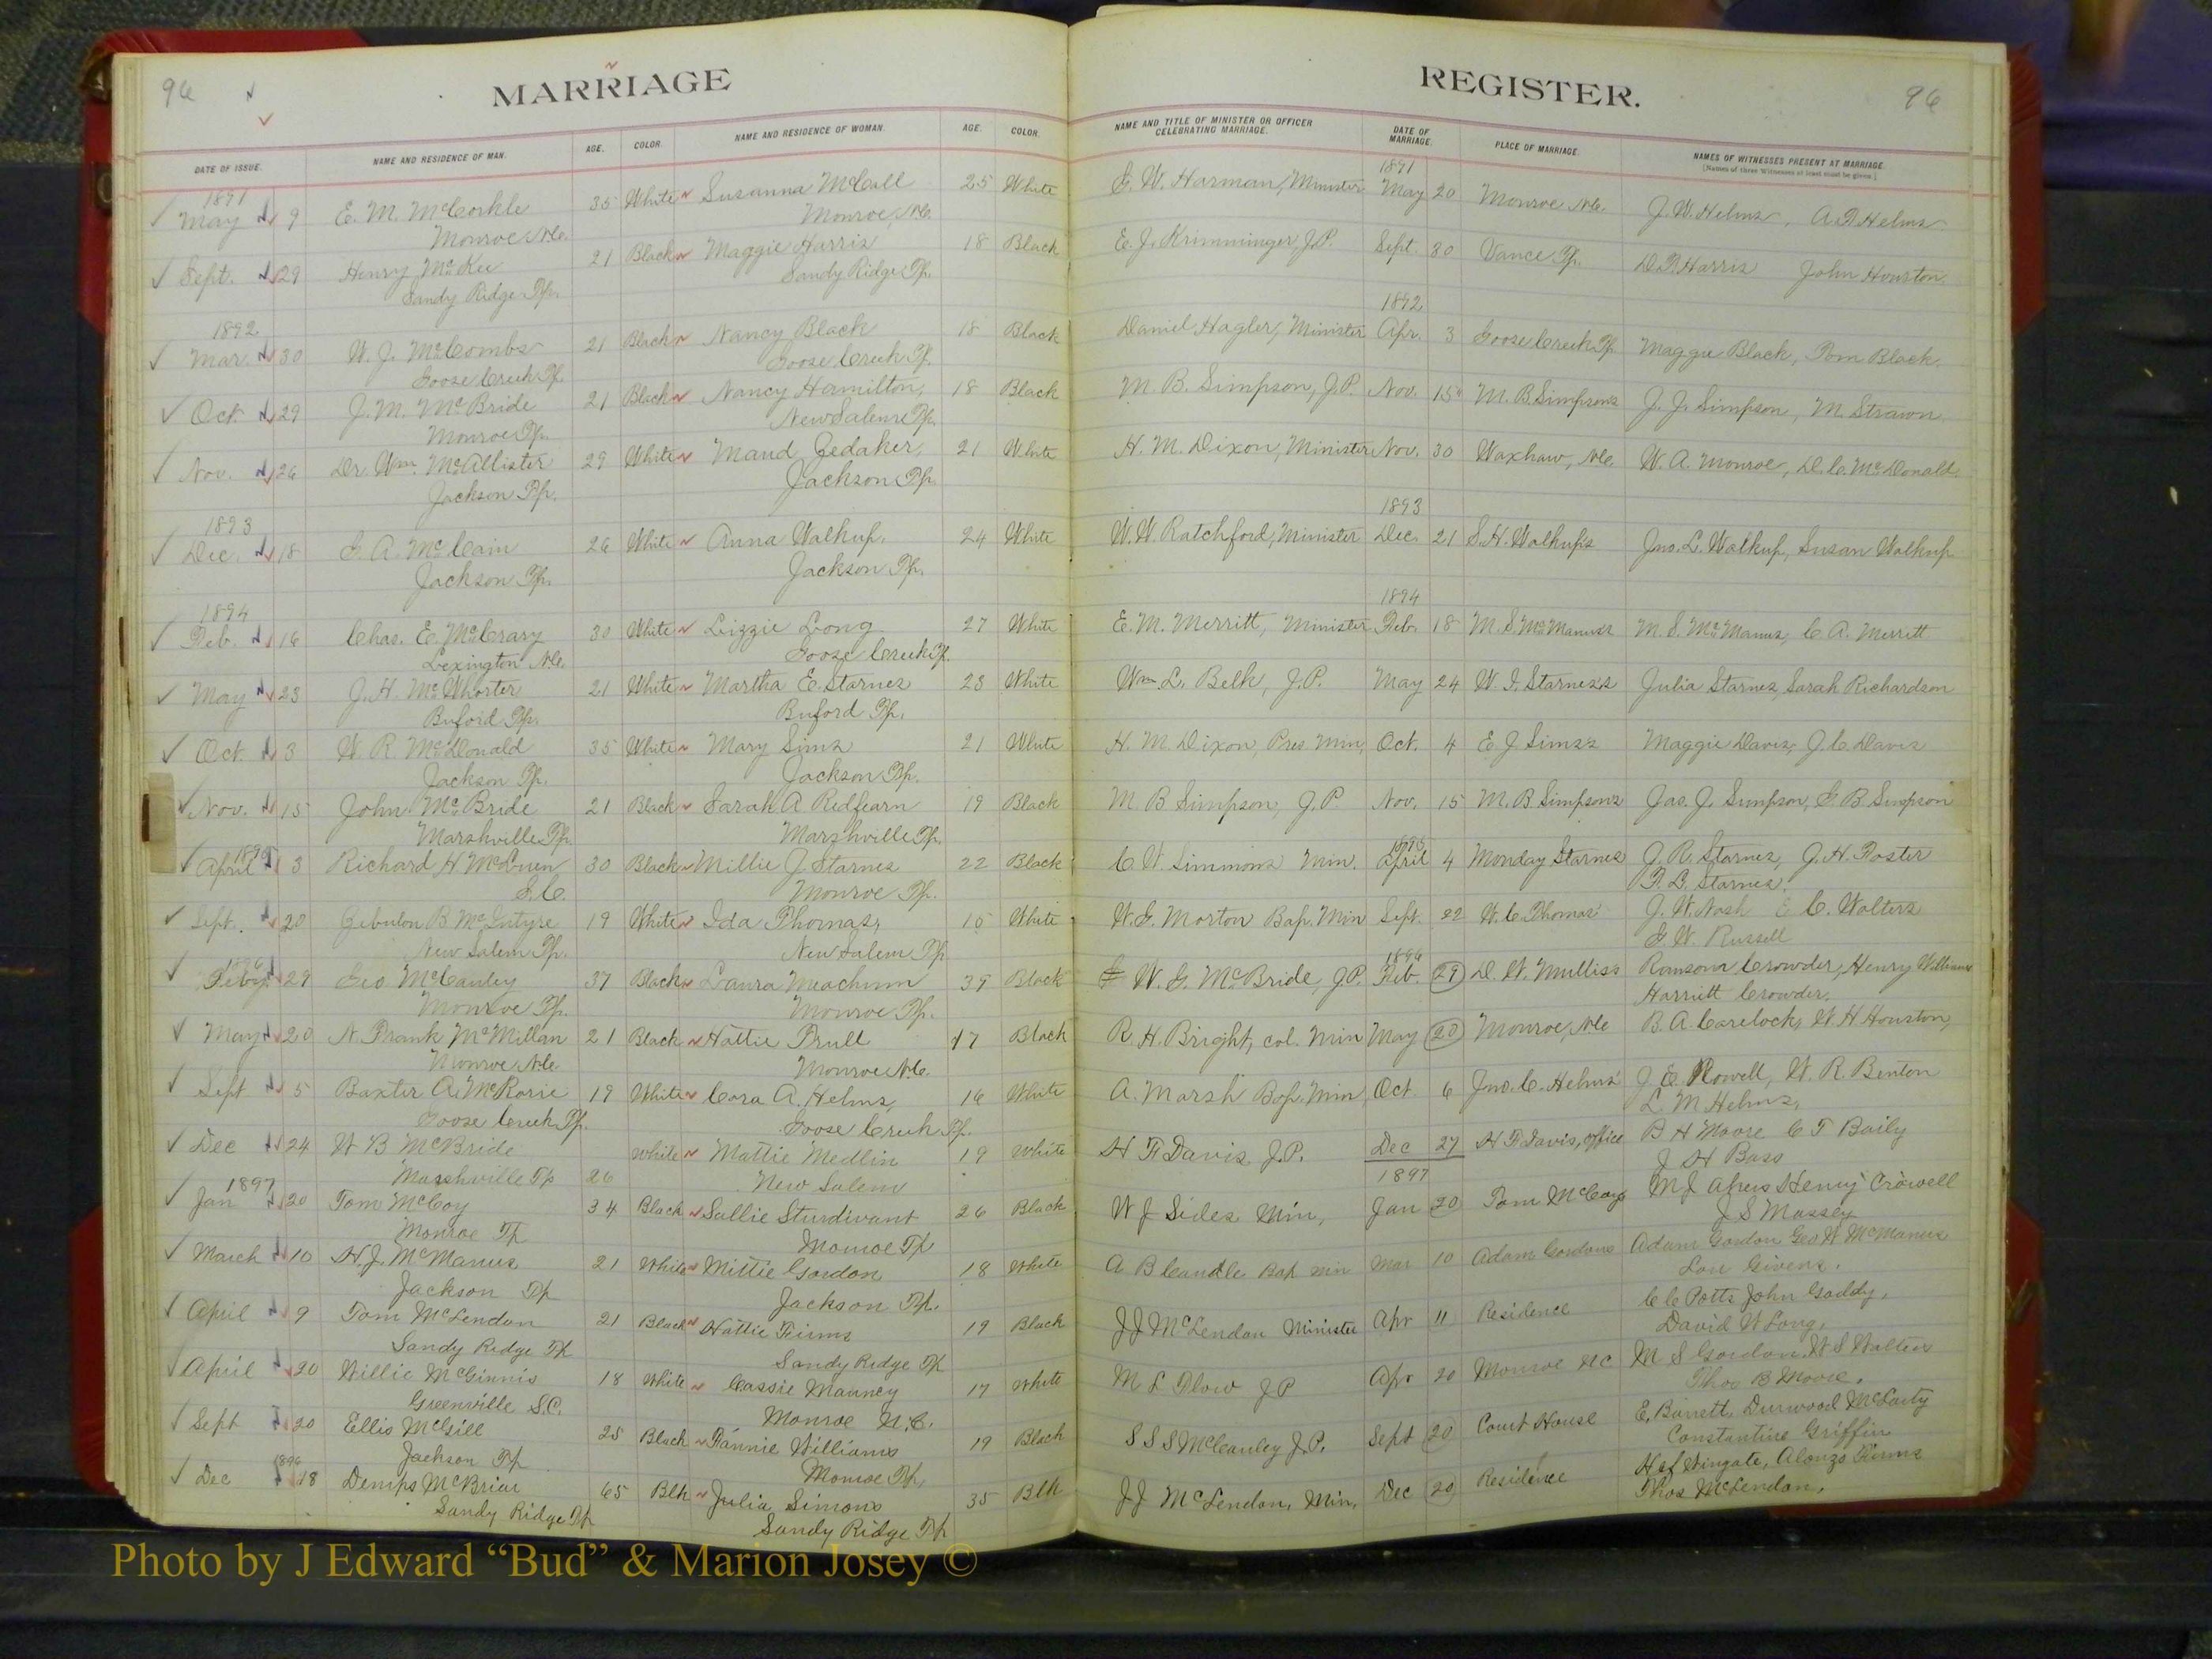 96
MARRIAGE
REGISTER.
96
DATE OF ISSUE. NAME AND RESIDENCE OF MAN. AGE. COLOR. NAME AND RESIDENCE OF WOMAN. AGE. COLOR. NAME AND TITLE OF MINISTER OR OFFICER CELEBRATING MARRIAGE. DATE OF MARRIAGE. PLACE OF MARRIAGE. NAMES OF WITNESSES PRESENT AT MARRIAGE.
[Names of three Witnesses at least must be given.]
1891 1891
May 9 E. M. McCorkle 35 White Susanna McCall 25 White G. W. Harman, Minister May 20 Monroe N.C. J. W. Helms, A. Helms
Monroe N.C. Monroe, N.C.
Sept. 29 Henry McKee 21 Black Maggie Harris 18 Black E. J. Krimminger, J.P. Sept. 30 Vance Tp. Harris John Houston
Sandy Ridge Tp. Sandy Ridge Tp.
1892 1892
Mar. 30 W. J. McCombs 21 Black Nancy Black 18 Black Daniel Hagler, Minister Apr. 3 Goose Creek Tp. Maggie Black, Tom Black.
Goose Creek Tp. Goose Creek Tp.
Oct. 29 J. M. McBride 21 Black Nancy Hamilton, 18 Black M. B. Simpson, J.P. Nov. 15 M. B. Simpsons J. J. Simpson, M. Strawn
Monroe Tp. New Salem Tp.
Nov. 26 Dr. Wm. McAllister 29 White Maud Gedaker, 21 White H. M. Dixon, Minister Nov. 30 Waxhaw, N.C. W. A. Monroe, D. C. McDonald
Jackson Tp. Jackson Tp.
1893 1893
Dec. 18 G. A. McCain 26 White Anna Walkup, 24 White W. W. Ratchford, Minister Dec. 21 S. H. Walkup's Jno. L. Walkup, Susan Walkup
Jackson Tp. Jackson Tp.
1894 1894
Feb. 16 Chas. E. McCrary 30 White Lizzie Long 27 White E. M. Merritt, Minister Feb. 18 M. S. McManus's M. S. McManus, C. A. Merritt
Lexington N.C. Goose Creek Tp.
May 23 J. H. McWhorter 21 White Martha E. Starnes 23 White Wm. L. Belk, J.P. May 24 W. I. Starnes's Julia Starnes, Sarah Richardson
Buford Tp. Buford Tp.
Oct. 3 W. R. McDonald 35 White Mary Sims 21 White H. M. Dixon, Pres. Min, Oct. 4 E. J. Sims's Maggie Davis, J. C. Davis
Jackson Tp. Jackson Tp.
Nov. 15 John McBride 21 Black Sarah A. Redfearn 19 Black M. B. Simpson, J.P. Nov. 15 M. B. Simpsons Jas. J. Simpson, G. B. Simpson
Marshville Tp. Marshville Tp.
1895 1895
April 3 Richard H. 30 Black Millie J. Starnes 22 Black C. W. Simmons Min. April 4 Monday Starnes J. R. Starnes, J. H. Foster
S.C. Monroe Tp. Starnes.
Sept. 20 Zebulon B. McIntyre 19 White Ida Thomas, 15 White W. G. Morton Bap. Min Sept. 22 W. C. Thomas' J. W. Nash E. C. Walters
New Salem Tp. New Salem Tp. G. W. Russell
1896 1896
Feby. 29 Geo McCauley 37 Black Laura Meachum 39 Black W. G. McBride, J.P. Feb. 29 D. W. Mulliss Ransom Crowder, Henry Williams
Monroe Tp. Monroe Tp. Harriett Crowder.
May 20 N. Frank McMillan 21 Black Hattie Trull 17 Black R. H. Bright, col. min May 20 Monroe, N.C B. A. Carelock, W. H Houston,
Monroe N.C Monroe N.C.
Sept 5 Baxter A. McRorie 19 White Cora A. Helms, 16 White A. Marsh Bap. Min, Oct. 6 Jno. C. Helms' J. E. Rowell, W. R. Benton
Goose Creek Tp. Goose Creek Tp. L. M Helms,
Dec 24 W B McBride White Mattie Medlin 19 White H F Davis J.P. Dec 27 H F Davis, office B H Moore C T Baily
Marshville Tp 26 New Salem J H Bass
1897 1897
Jan 20 Tom McCoy 34 Black Sallie Sturdivant 26 Black W J Sides Min, Jan 20 Tom McCoys M J Henry Crowell
Monroe Tp Monroe Tp J S Massey
March 10 H. J. McManus 21 White Mittie Gordon 18 White A B Caudle Bap min Mar 10 Adam Gordons Adam Gordon Geo W McManus
Jackson Tp Jackson Tp. Lou Givens.
April 9 Tom McLendon 21 Black Hattie Tirms 19 Black J J McLendon Minister Apr 11 Residence C C Potts John Gaddy,
Sandy Ridge Tp Sandy Ridge Tp David W Long,
April 20 Willie McGinnis 18 White Cassie Mauney 17 White M L Flow J P Apr 20 Monroe N C M S Gordon, W S Walters
Greenville S.C. Monroe N.C. Thos B Moore.
Sept 20 Ellis McGill 25 Black Fannie Williams 19 Black S S S McCauley J.P. Sept 20 Court House E. Barrett, Durwood McCarty
Jackson Tp Monroe Tp, Constantine Griffin
1896
Dec 18 Demps McBriar 65 Blk Julia Simons 35 Blk J J McLendon, Min, Dec 20 Residence Wingate, Alonzo Tirms
Sandy Ridge Tp Sandy Ridge Tp Thos McLendon,
Photo by J Edward “Bud” & Marion Josey ©